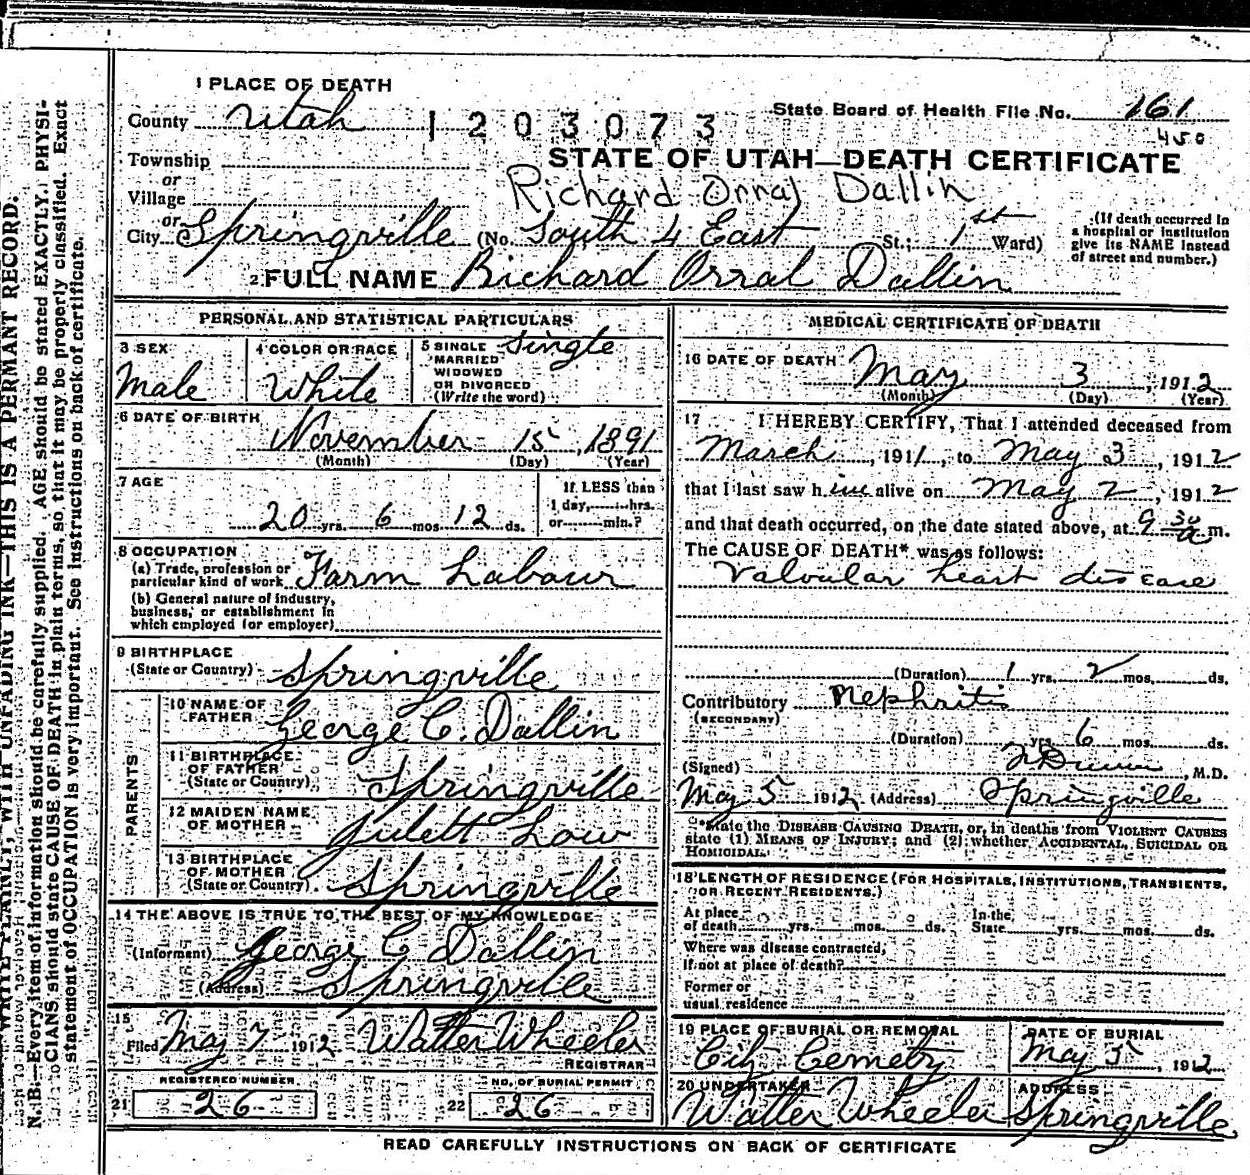 1 PLACE OF DEATH
County Utah
1203073
State Board of Health File No. 161
450
Township
or
Village
STATE OF UTAH—DEATH CERTIFICATE
Richard Orral Dallin
or
City Springville (No. South 4 East St.; 1st Ward)
(If death occurred in
a hospital or institution
give its NAME instead
of street and number.)
2 FULL NAME Richard Orral Dallin
PERSONAL AND STATISTICAL PARTICULARS
3 SEX
Male
4 COLOR OR RACE
White
5 SINGLE
MARRIED
WIDOWED
OR DIVORCED
(Write the word)
Single
6 DATE OF BIRTH
November 15, 1891
(Month) (Day) (Year)
7 AGE
20 yrs. 6 mos. 12 ds.
If LESS than
1 day, hrs.
or min.?
8 OCCUPATION
(a) Trade, profession or
particular kind of work Farm Labour
(b) General nature of industry,
business, or establishment in
which employed (or employer)
9 BIRTHPLACE
(State or Country) Springville
PARENTS
10 NAME OF
FATHER George C. Dallin
11 BIRTHPLACE
OF FATHER
(State or Country) Springville
12 MAIDEN NAME
OF MOTHER Julett Law
13 BIRTHPLACE
OF MOTHER
(State or Country) Springville
14 THE ABOVE IS TRUE TO THE BEST OF MY KNOWLEDGE
(Informant) George C Dallin
(Address) Springville
15
Filed May 7 1912 Walter Wheeler
REGISTRAR
REGISTERED NUMBER
21 26
NO. OF BURIAL PERMIT
22 26
MEDICAL CERTIFICATE OF DEATH
16 DATE OF DEATH May 3, 1912
(Month) (Day) (Year)
17 I HEREBY CERTIFY, That I attended deceased from
March, 1911, to May 3, 1912
that I last saw him alive on May 2, 1912
and that death occurred, on the date stated above, at 9 30 a m.
The CAUSE OF DEATH* was as follows:
Valvular heart disease
(Duration) 1 yrs. 2 mos. ds.
Contributory Nephritis
(SECONDARY)
(Duration) yrs. 6 mos. ds.
(Signed) , M.D.
May 5 1912 (Address) Springville
*State the DISEASE CAUSING DEATH, or, in deaths from VIOLENT CAUSES
state (1) MEANS OF INJURY; and (2) whether ACCIDENTAL, SUICIDAL OR
HOMICIDAL.
18 LENGTH OF RESIDENCE (FOR HOSPITALS, INSTITUTIONS, TRANSIENTS,
OR RECENT RESIDENTS.)
At place
of death yrs. mos. ds.
In the
State yrs. mos. ds.
Where was disease contracted,
If not at place of death?
Former or
usual residence
19 PLACE OF BURIAL OR REMOVAL
City Cemetry
DATE OF BURIAL
May 5, 1912
20 UNDERTAKER
Walter Wheeler
ADDRESS
Springville
READ CAREFULLY INSTRUCTIONS ON BACK OF CERTIFICATE
WRITE PLAINLY, WITH UNFADING INK—THIS IS A PERMANT RECORD.
N. B.—Every item of information should be carefully supplied. AGE should be stated EXACTLY. PHYSI-
CIANS should state CAUSE OF DEATH in plain terms, so that it may be properly classified. Exact
statement of OCCUPATION is very important. See Instructions on back of certificate.